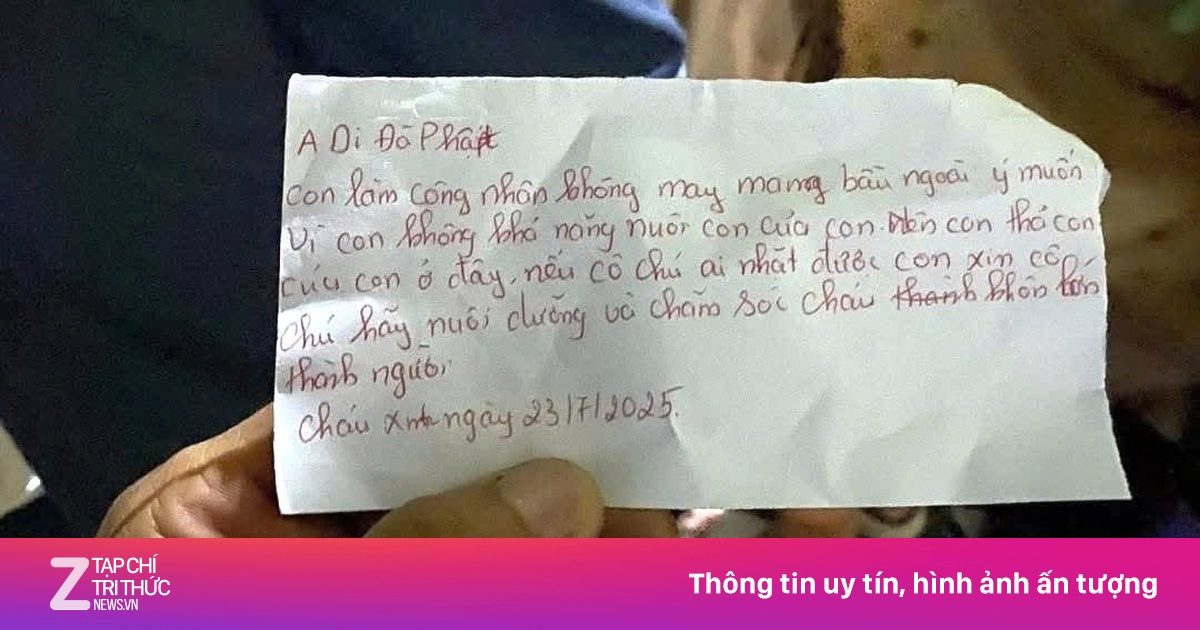 A Di Đà Phật
con làm công nhân không may mang bầu ngoài ý muốn
vì con không khả năng nuôi con của con. Nên con thả con
của con ở đây, nếu cô chú ai nhặt được con xin cô,
chú hãy nuôi dưỡng và chăm sóc cháu thành khôn lớn
thành người
cháu xinh ngày 23/7/2025.
Z TẠP CHÍ
TRI THỨC
NEWS.VN
Thông tin uy tín, hình ảnh ấn tượng